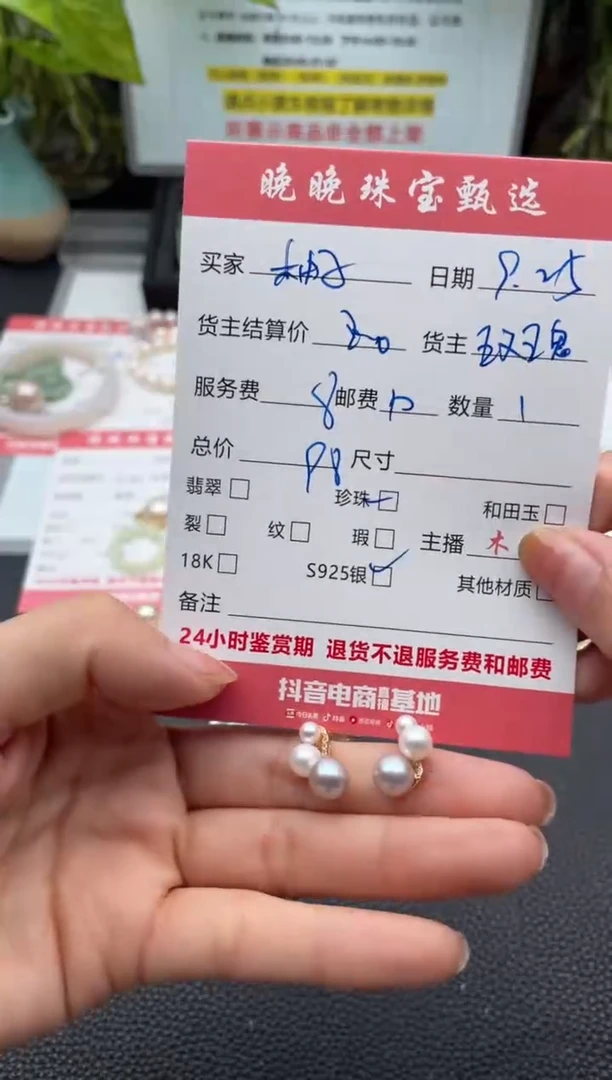 晚晚珠宝甄选
买家 柚子 日期 9.25
货主结算价 货主
服务费 8 邮费 10 数量 1
总价 98 尺寸
翡翠 珍珠 和田玉
裂 纹 瑕 主播 木
18K S925银 其他材质
备注
24小时鉴赏期 退货不退服务费和邮费
抖音电商直播基地